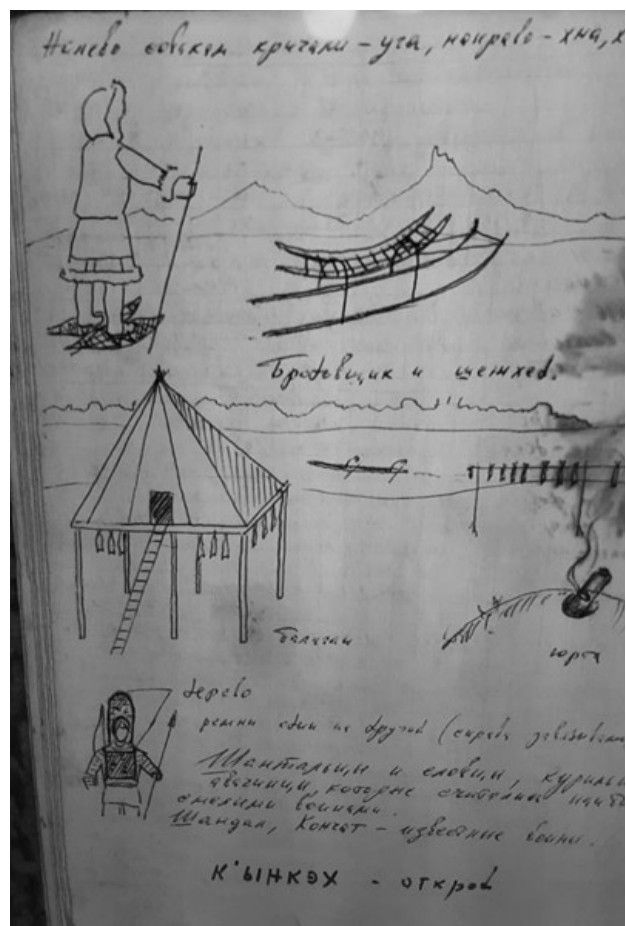 Налево собакам кричали - уга, направо - хна, х
Бродовщик и шежхед.
балаган
юрта
дерево
ремни один на другой (справа завязыван
Шантальцы и словцы, курильц
авачинцы, которые считались наиб
смелыми воинами.
Шандал, Кончат - известные воины.
К'ЫНКЭХ - открой